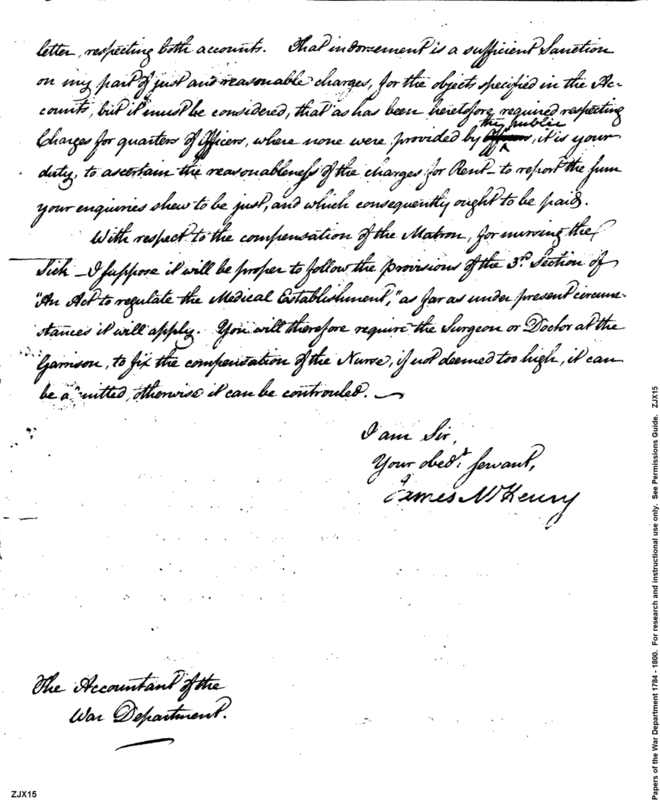 letter, respecting both accounts. That indorsement is a sufficient Sanction
on my part of just and reasonable charges, for the objects specified in the Ac-
counts, but it must be considered, that as has been heretofore required respecting
Charges for quarters of Officers, where none were provided by the public, it is your
duty, to ascertain the reasonableness of the charges for Rent to report the sum
your enquiries shew to be just, and which consequently ought to be paid.
With respect to the compensation of the Matron, for nursing the
Sick - I suppose it will be proper to follow the provisions of the 3.d Section of
"An Act to regulate the Medical Establishment," as far as under present circum-
stances it will apply. You will therefore require the Surgeon or Doctor at the
Garrison, to fix the compensation of the Nurse, if not deemed too high, it can
be a mitted, otherwise it can be controuled.
I am Sir,
Your obed.t servant,
James McHenry
The Accountant of the
War Department.
ZJX15
Papers of the War Department 1784 - 1800. For research and instructional use only. See Permissions Guide. ZJX15